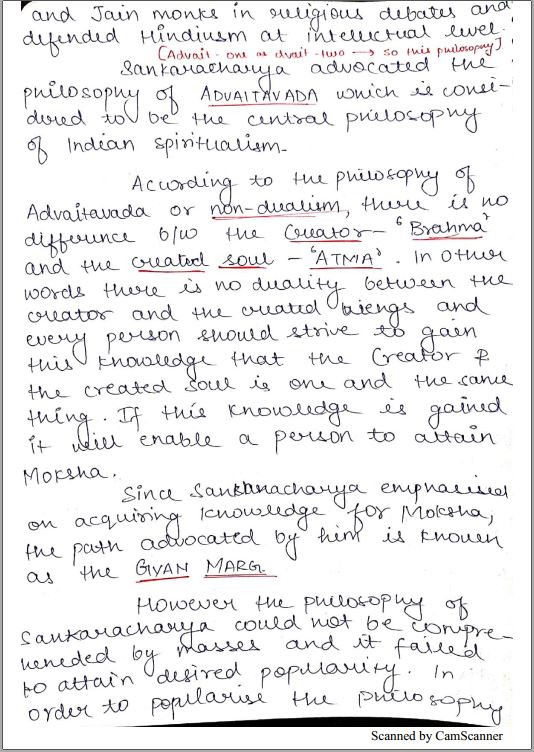 and Jain monks in religious debates and
defended Hinduism at intelectual level.
[Advait - one as dvait - two → so this philosophy]
Sankaracharya advocated the
philosophy of ADVAITAVADA which is consi-
dered to be the central philosophy
of Indian spiritualism.
According to the philosophy of
Advaitavada or non-dualism, there is no
difference b/w the Creator - 'Brahma'
and the created soul - 'ATMA'. In other
words there is no duality between the
creator and the created biengs and
every person should strive to gain
this knowledge that the Creator &
the created soul is one and the same
thing. If this knowledge is gained
it will enable a person to attain
Moksha.
Since Sankaracharya emphasised
on acquiring knowledge for Moksha,
the path advocated by him is known
as the GYAN MARG.
However the philosophy of
Sankaracharya could not be compre-
heneded by masses and it failed
to attain desired popularity. In
order to popularise the philosophy
Scanned by CamScanner